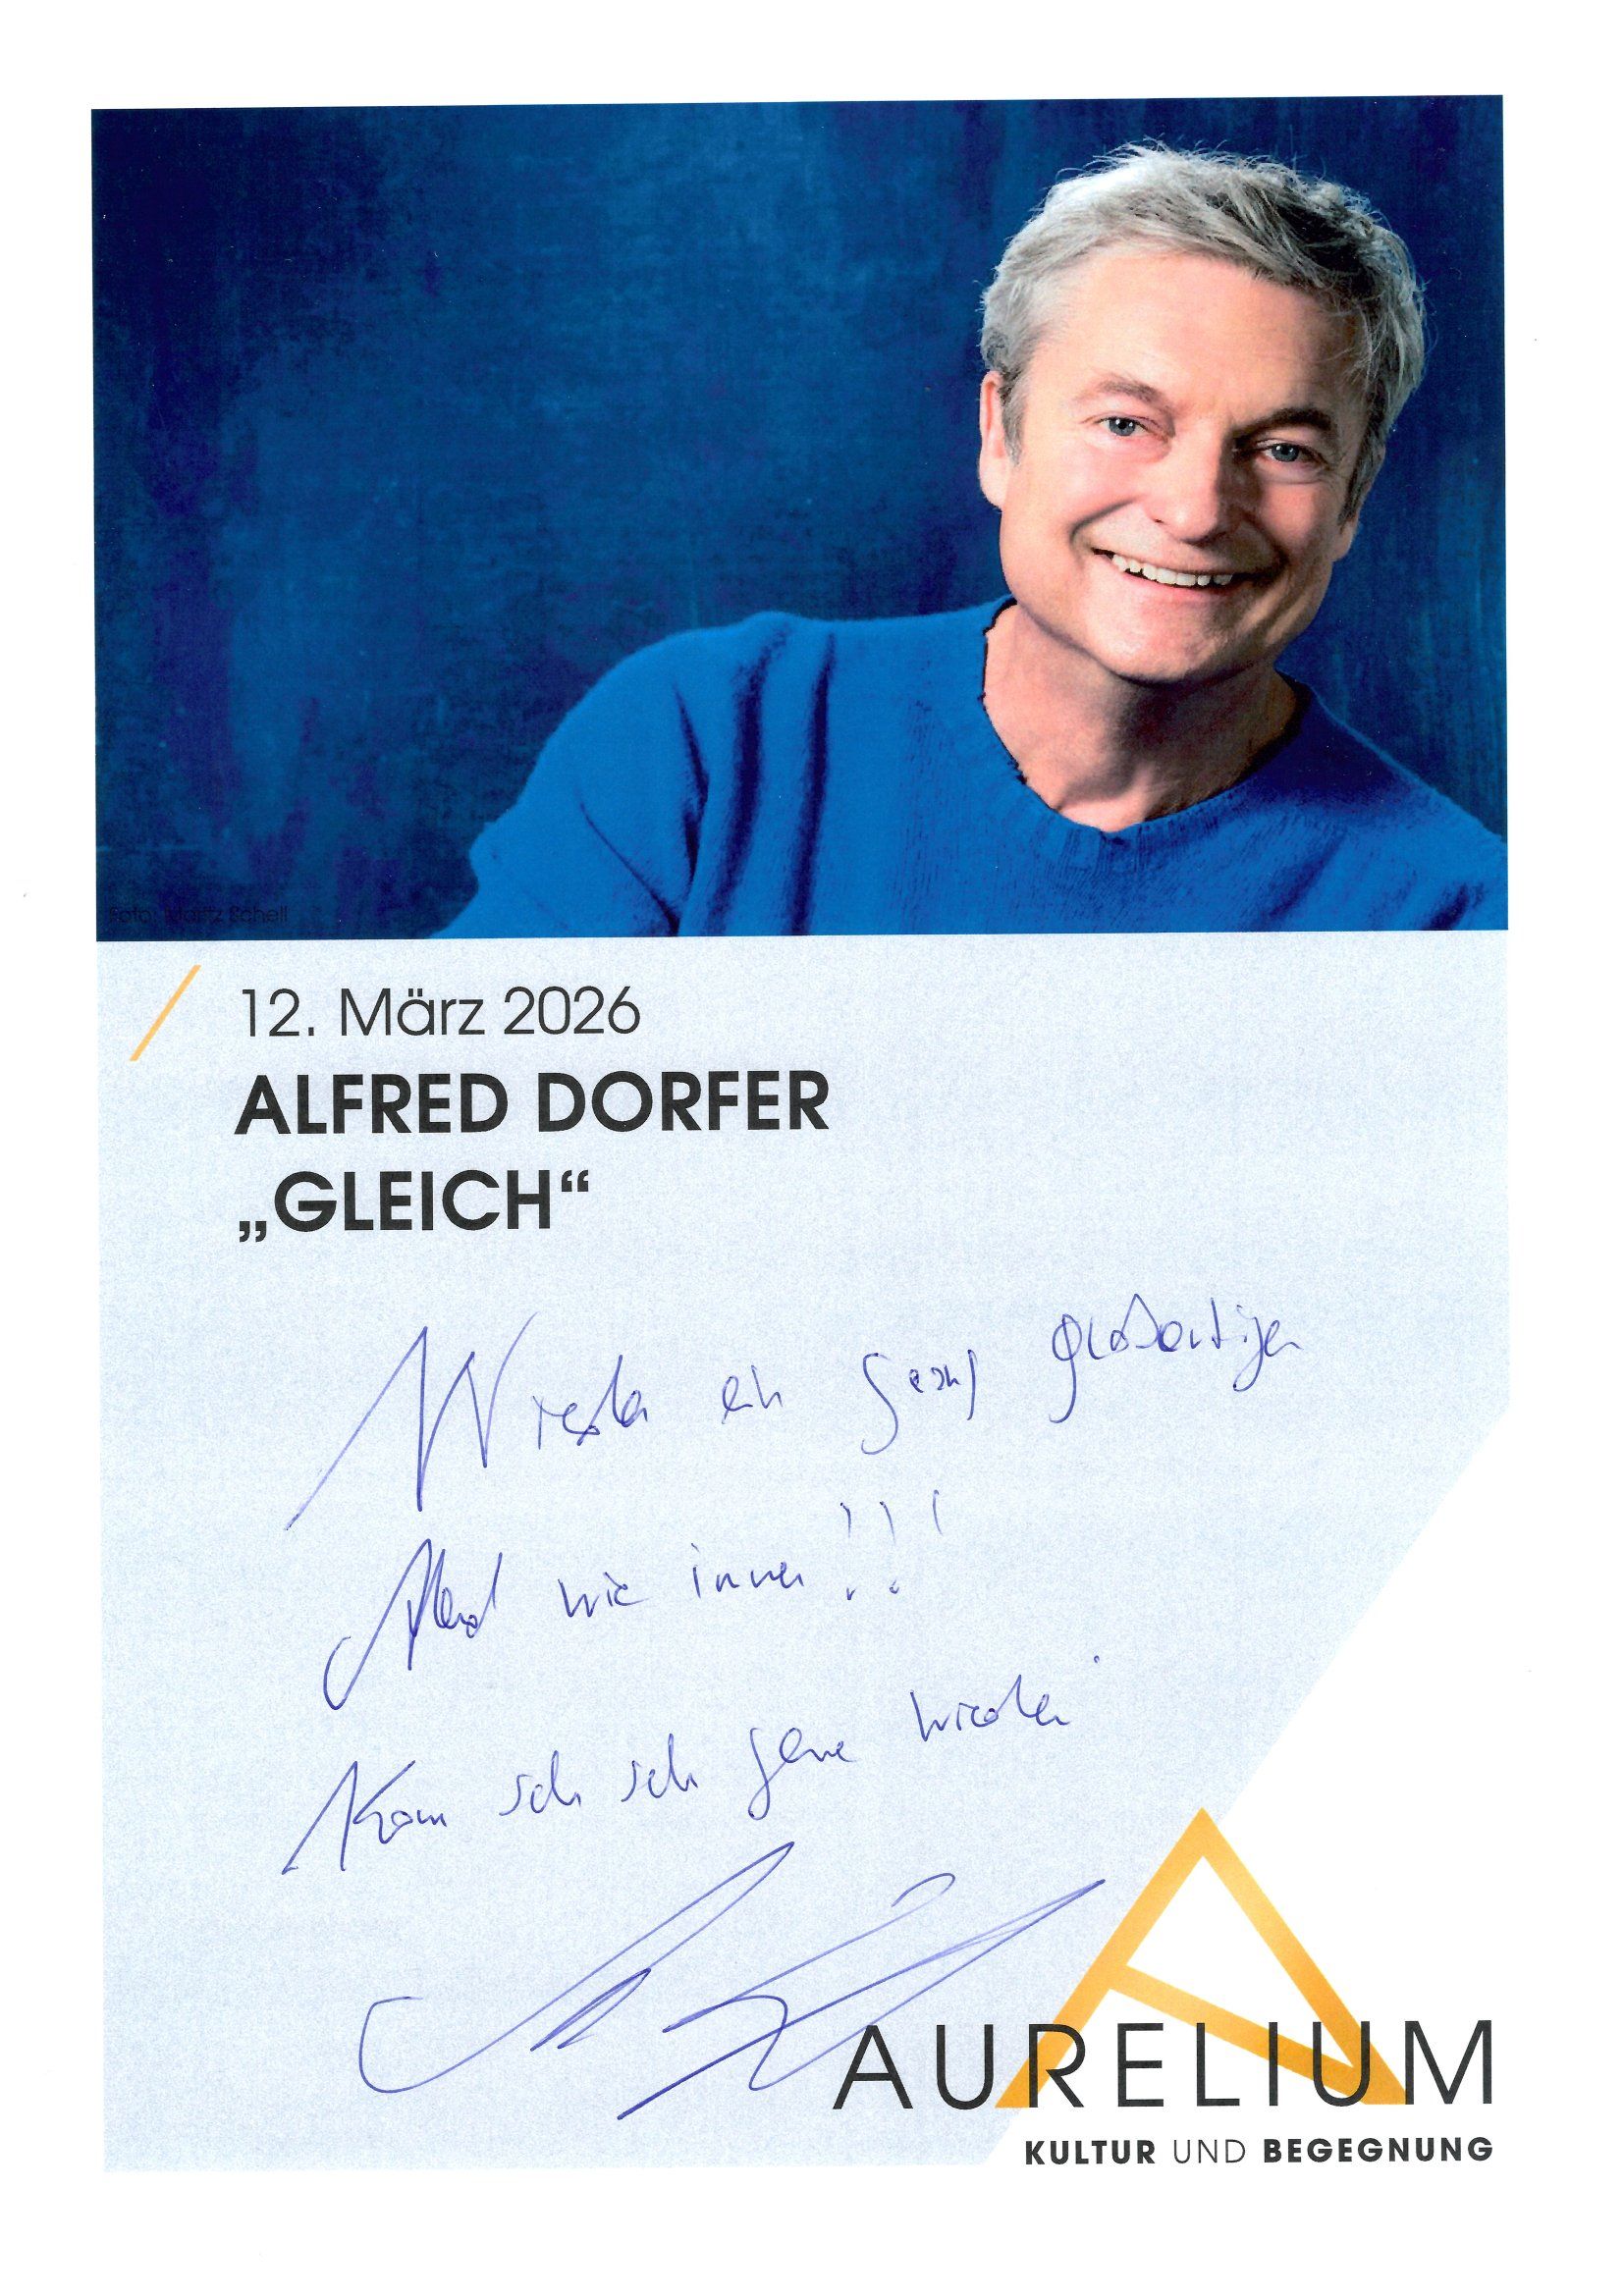 Foto: Moritz Schell
12. März 2026
ALFRED DORFER
„GLEICH“
Wieder ein ganz großartiger
Abend wie immer!!!
Komm sehr sehr gerne wieder
AURELIUM
KULTUR UND BEGEGNUNG